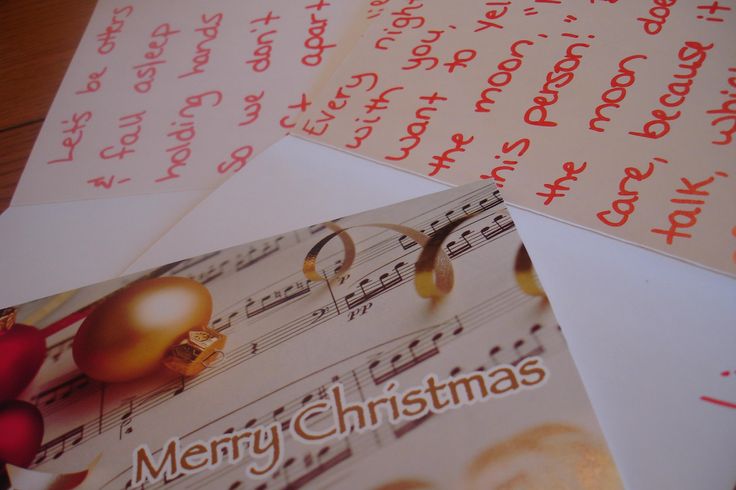 Let's be otters
& fall asleep
holding hands
so we don't
apart
Every night
with you,
want to Yel
the moon, "
his person!"
the moon doe
care, because it
talk, whic
pp
Merry Christmas